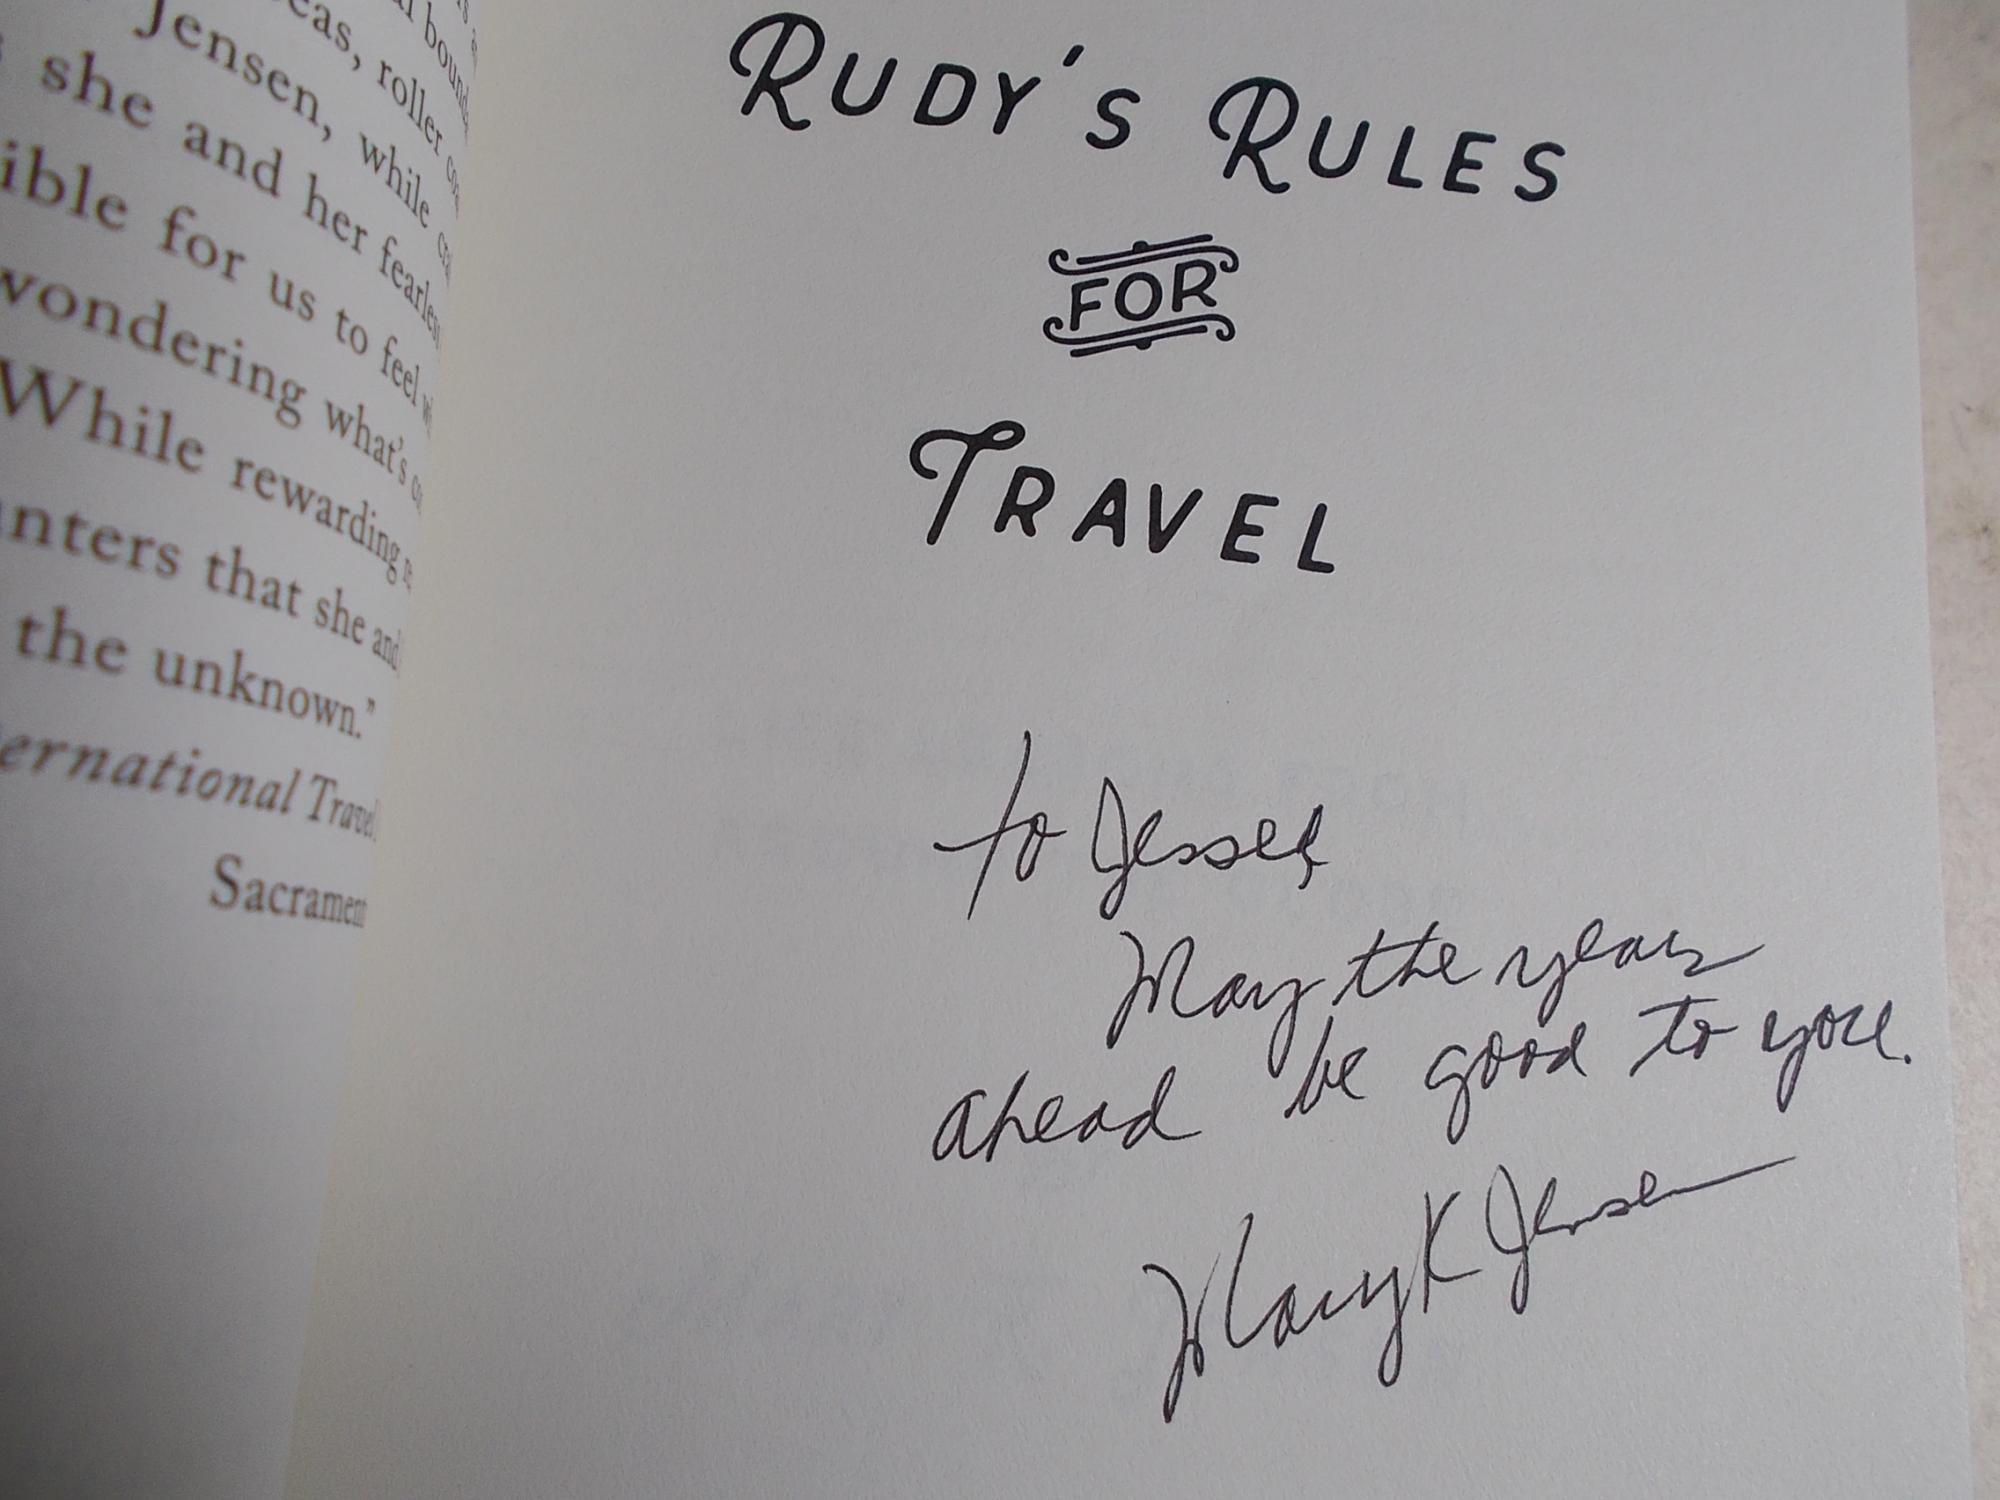 eas, roller
Jensen, while
she and her fearless
ible for us to feel
wondering what's
While rewarding
nters that she and
the unknown."
ernational Travel
Sacrament
RUDY'S RULES
FOR
TRAVEL
To Jesse
May the years
ahead be good to you.
Mary K Jensen